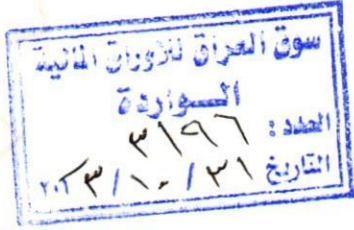 سوق العراق للأوراق المالية
الواردة
العدد : ٣١٩٦
التاريخ ٣١ / ١٠ / ٢٠٢٣